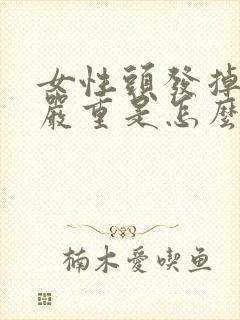 女性頭發掉
嚴重是怎麼
楠木愛喫鱼